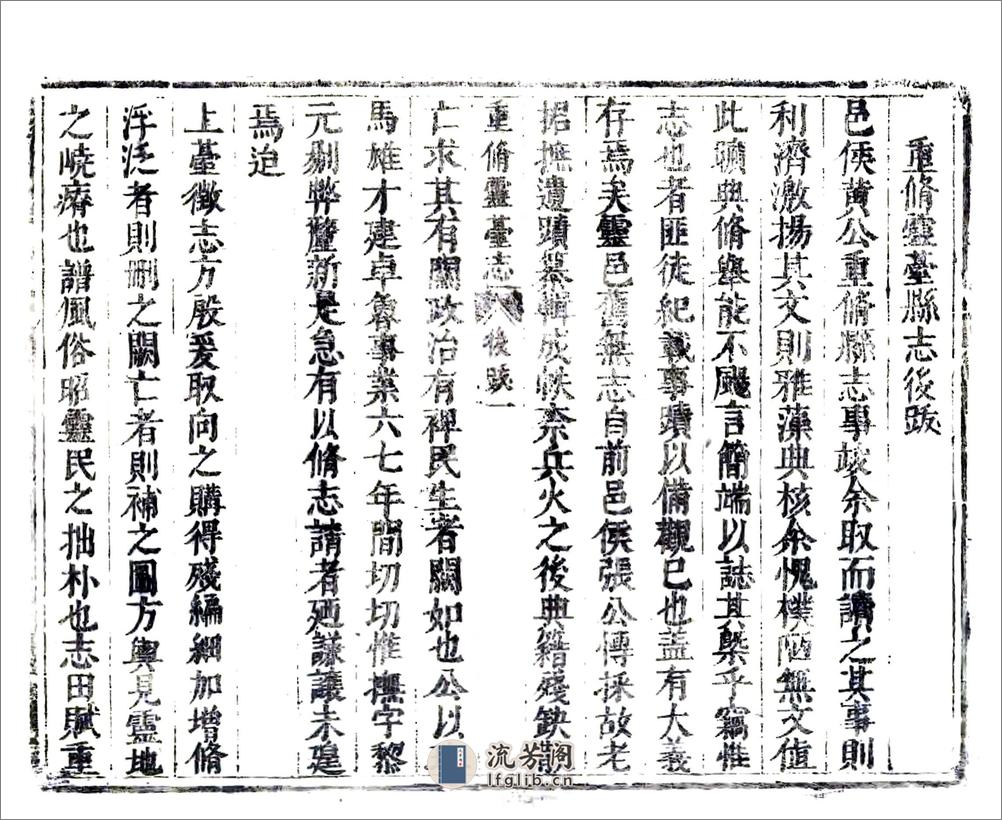 重脩靈臺縣志後跋
邑侯黄公重脩縣志事竣余取而讀之其事則
利濟激揚其文則雅藻典核余愧樸陋無文值
此曠典脩舉能不颺言簡端以誌其槩乎竊惟
志也者匪徒紀載事蹟以備觀已也盖有大義
存焉矣靈邑舊無志自前邑侯張公慱採故老
捃摭遺蹟纂輯成帙柰兵火之後典籍殘缺
重脩靈臺志 後跋 一
亡求其有關政治有裨民生者闕如也公以
馬雄才建卓魯事業六七年間切切惟撫字黎
元剔弊釐新是急有以脩志請者廼謙讓未遑
焉迨
上臺徵志方殷爰取向之購得殘編細加增脩
浮泛者則刪之闕亡者則補之圖方輿見靈地
之嶢瘠也譜風俗昭靈民之拙朴也志田賦重
流芳阁
lfglib.cn